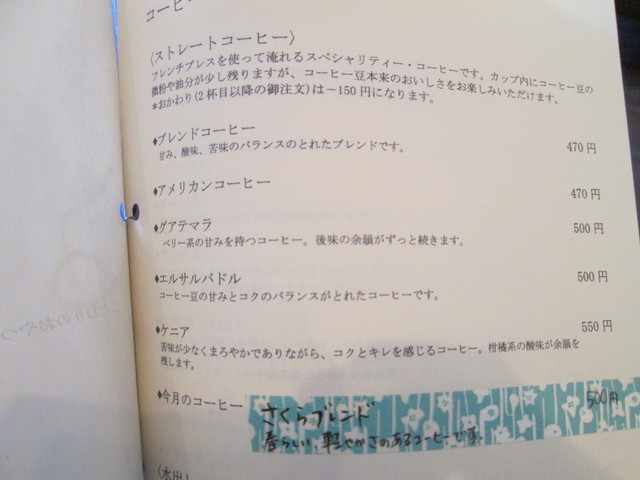 コーヒー
〈ストレートコーヒー〉
フレンチプレスを使って淹れるスペシャリティー・コーヒーです。カップ内にコーヒー豆の
微粉や油分が少し残りますが、コーヒー豆本来のおいしさをお楽しみいただけます。
*おかわり(2杯目以降の御注文)は－150円になります。
♦ブレンドコーヒー 470円
甘み、酸味、苦味のバランスのとれたブレンドです。
♦アメリカンコーヒー 470円
♦グアテマラ 500円
ベリー系の甘みを持つコーヒー。後味の余韻がずっと続きます。
♦エルサルバドル 500円
コーヒー豆の甘みとコクのバランスがとれたコーヒーです。
♦ケニア 550円
苦味が少なくまろやかでありながら、コクとキレを感じるコーヒー。柑橘系の酸味が余韻を
残します。
♦今月のコーヒー さくらブレンド 500円
春らしい、軽やかさのあるコーヒーです。
〈水出し